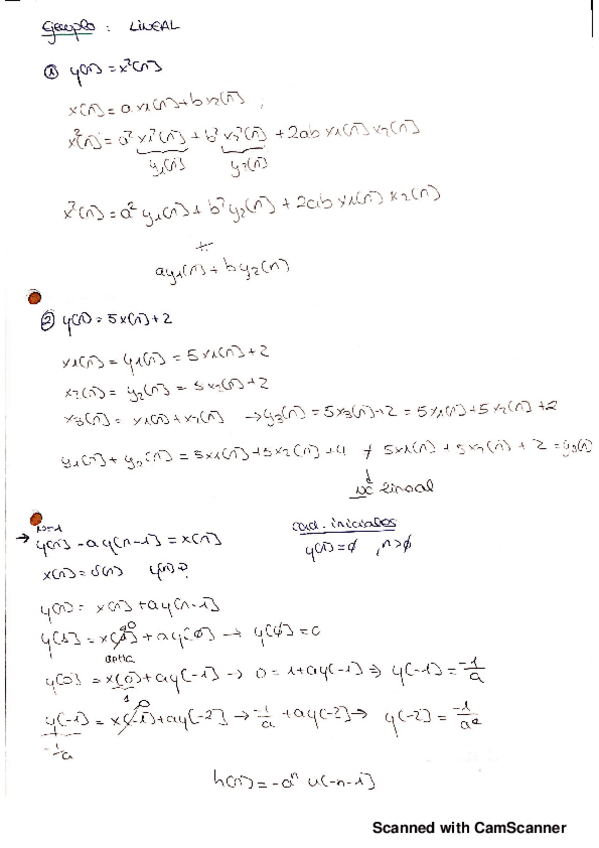 Ejemplo : LINEAL
① y(n) = x²(n)
x(n) = a x1(n) + b x2(n) ,
x²(n) = a² x1²(n) + b² x2²(n) + 2ab x1(n) x2(n)
y1(n) y2(n)
x²(n) = a² y1(n) + b² y2(n) + 2ab x1(n) x2(n)
≠
a y1(n) + b y2(n)
② y(n) = 5x(n) + 2
x1(n) = y1(n) = 5x1(n) + 2
x2(n) = y2(n) = 5x2(n) + 2
x3(n) = x1(n) + x2(n) → y3(n) = 5x3(n) + 2 = 5x1(n) + 5x2(n) + 2
y1(n) + y2(n) = 5x1(n) + 5x2(n) + 4 ≠ 5x1(n) + 5x2(n) + 2 = y3(n)
↓
lineal
N=1
→ y(n) - ay(n-1) = x(n)
cond. iniciales
y(n) = ø , n>ø
x(n) = δ(n) y(n)?
y(n) = x(n) + ay(n-1)
y(1) = x(1) + ay(0) → y(0) = 0
delta
y(0) = x(0) + ay(-1) → 0 = 1 + ay(-1) ⇒ y(-1) = -1/a
1
y(-1) = x(-1) + ay(-2) → -1/a + ay(-2) → y(-2) = -1/a²
-1/a
h(n) = -aⁿ u(-n-1)
Scanned with CamScanner